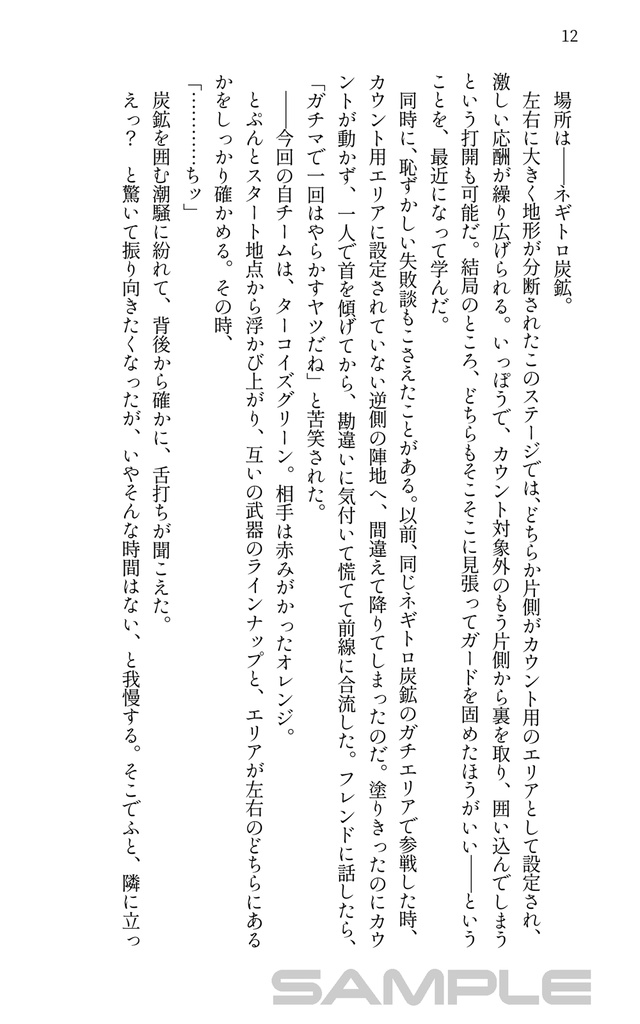 12
場所は――ネギトロ炭鉱。
左右に大きく地形が分断されたこのステージでは、どちらか片側がカウント用のエリアとして設定され、
激しい応酬が繰り広げられる。いっぽうで、カウント対象外のもう片側から裏を取り、囲い込んでしまう
という打開も可能だ。結局のところ、どちらもそこそこに見張ってガードを固めたほうがいい――という
ことを、最近になって学んだ。
同時に、恥ずかしい失敗談もこさえたことがある。以前、同じネギトロ炭鉱のガチエリアで参戦した時、
カウント用エリアに設定されていない逆側の陣地へ、間違えて降りてしまったのだ。塗りきったのにカウ
ントが動かず、一人で首を傾げてから、勘違いに気付いて慌てて前線に合流した。フレンドに話したら、
「ガチマで一回はやらかすヤツだね」と苦笑された。
――今回の自チームは、ターコイズグリーン。相手は赤みがかったオレンジ。
とぷんとスタート地点から浮かび上がり、互いの武器のラインナップと、エリアが左右のどちらにある
かをしっかり確かめる。その時、
「…………ちッ」
炭鉱を囲む潮騒に紛れて、背後から確かに、舌打ちが聞こえた。
えっ？　と驚いて振り向きたくなったが、いやそんな時間はない、と我慢する。そこでふと、隣に立っ
SAMPLE